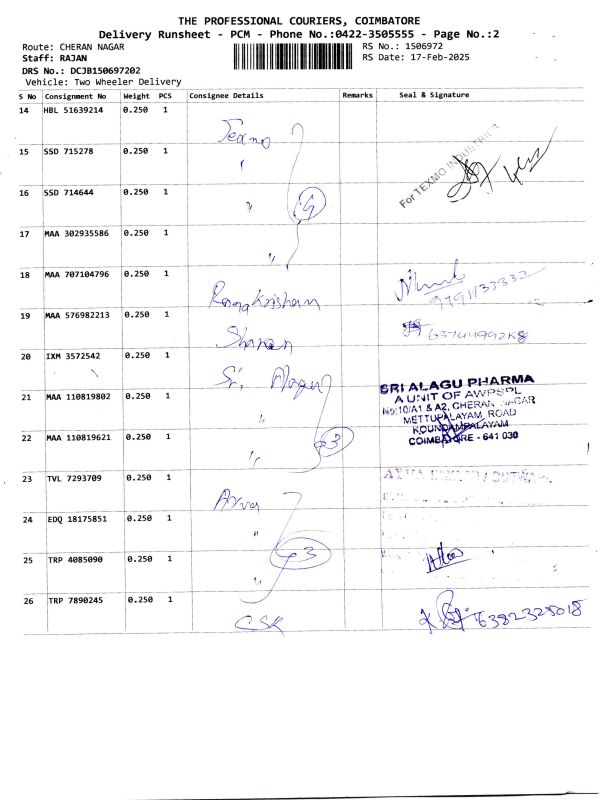 THE PROFESSIONAL COURIERS, COIMBATORE
Delivery Runsheet - PCM - Phone No.:0422-3505555 - Page No.:2
Route: CHERAN NAGAR RS No.: 1506972
Staff: RAJAN RS Date: 17-Feb-2025
DRS No.: DCJB150697202
Vehicle: Two Wheeler Delivery
S No Consignment No Weight PCS Consignee Details Remarks Seal & Signature
14 HBL 51639214 0.250 1 Texmo
15 SSD 715278 0.250 1 "
For TEXMO INDUSTRIES
16 SSD 714644 0.250 1 " 4
17 MAA 302935586 0.250 1 "
18 MAA 707104796 0.250 1 Ramakrishnan 9791133332
19 MAA 576982213 0.250 1 Sharan
20 IXM 3572542 0.250 1 Sri Alagu
21 MAA 110819802 0.250 1 "
SRI ALAGU PHARMA
A UNIT OF AWPSPL
No:10/A1 & A2, CHERAN NAGAR
METTUPALAYAM ROAD
KOUNDAMPALAYAM
COIMBATORE - 641 030
22 MAA 110819621 0.250 1 " 3
23 TVL 7293709 0.250 1
24 EDQ 18175851 0.250 1 "
25 TRP 4085090 0.250 1 " 3
26 TRP 7890245 0.250 1 CSK 6382328018